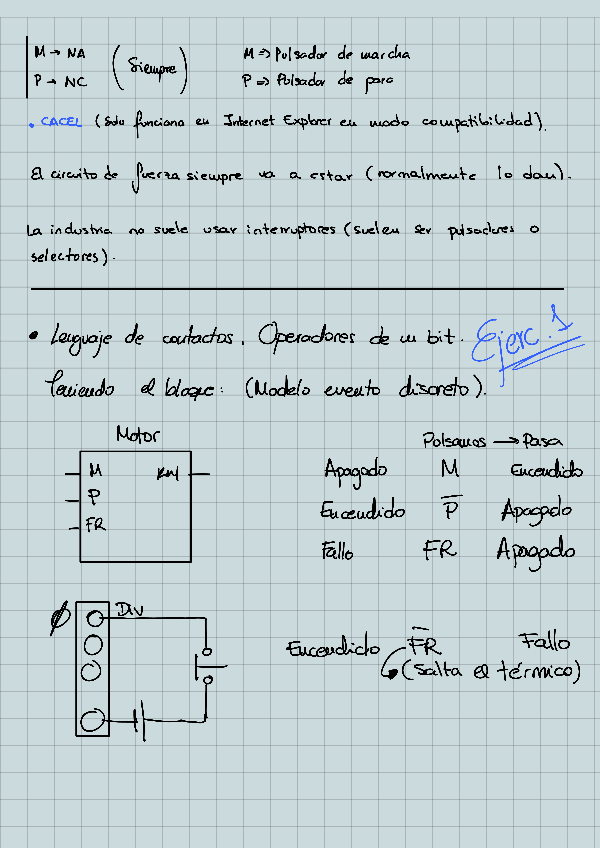 M → NA (Siempre) M => Pulsador de marcha
P → NC P => Pulsador de paro
• CACEL (Solo funciona en Internet Explorer en modo compatibilidad).
El circuito de fuerza siempre va a estar (normalmente lo dan).
La industria no suele usar interruptores (suelen ser pulsadores o
selectores).
• Lenguaje de contactos. Operadores de un bit. Ejerc. 1
Teniendo el bloque: (Modelo evento discreto).
Motor
M KM
P
FR
Pulsamos → Pasa
Apagado M Encendido
Encendido P̅ Apagado
Fallo FR Apagado
Ø DIV
Encendido F̅R̅ Fallo
(Salta el térmico)